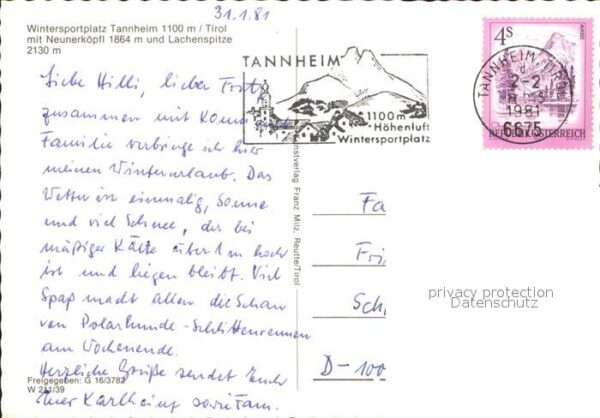 31.1.81
Wintersportplatz Tannheim 1100 m / Tirol
mit Neunerköpfl 1864 m und Lachenspitze
2130 m
Liebe Hilli, lieber Fritz
zusammen mit
Familie verbringe ich hier
meinen Winterurlaub. Das
Wetter ist einmalig, Sonne
und viel Schnee, der bei
mäßiger Kälte über 1 m hoch
ist und liegen bleibt. Viel
Spaß macht allen die Schau
von Polarhunde-Schlittenrennen
am Wochenende.
Herzliche Grüße sendet Euch
Euer Karlheinz sowie Fam.
Freigegeben: G 16/3782
W 211/39
Kunstverlag Franz Milz, Reutte/Tirol
TANNHEIM
1100m
Höhenluft
Wintersportplatz
4S
REPUBLIK ÖSTERREICH
TANNHEIM, TIROL
d
2.-2.
1981
6675
Fa
Fri
Sch
D-100
privacy protection
Datenschutz